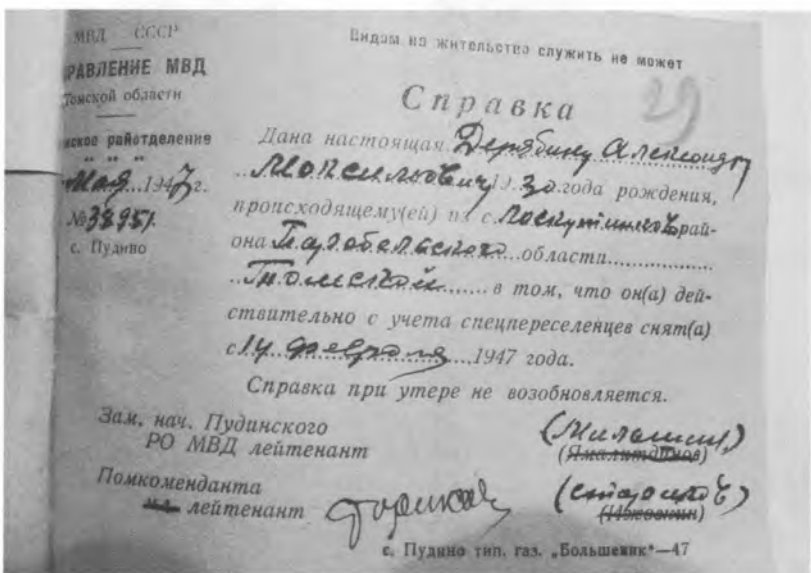 МВД СССР
УПРАВЛЕНИЕ МВД
Томской области
райотделение
" " "
Мая 1947 г.
№ 38951
с. Пудино
Видом на жительство служить не может
29
Справка
Дана настоящая Дерябину Александру
19 30 года рождения,
происходящему(ей) из с. рай-
она области
Томской в том, что он(а) дей-
ствительно с учета спецпереселенцев снят(а)
с 14 февраля 1947 года.
Справка при утере не возобновляется.
Зам. нач. Пудинского
РО МВД лейтенант
(Милашин)
(Ямалитдинов)
Помкоменданта
лейтенант
с. Пудино тип. газ. „Большевик“—47